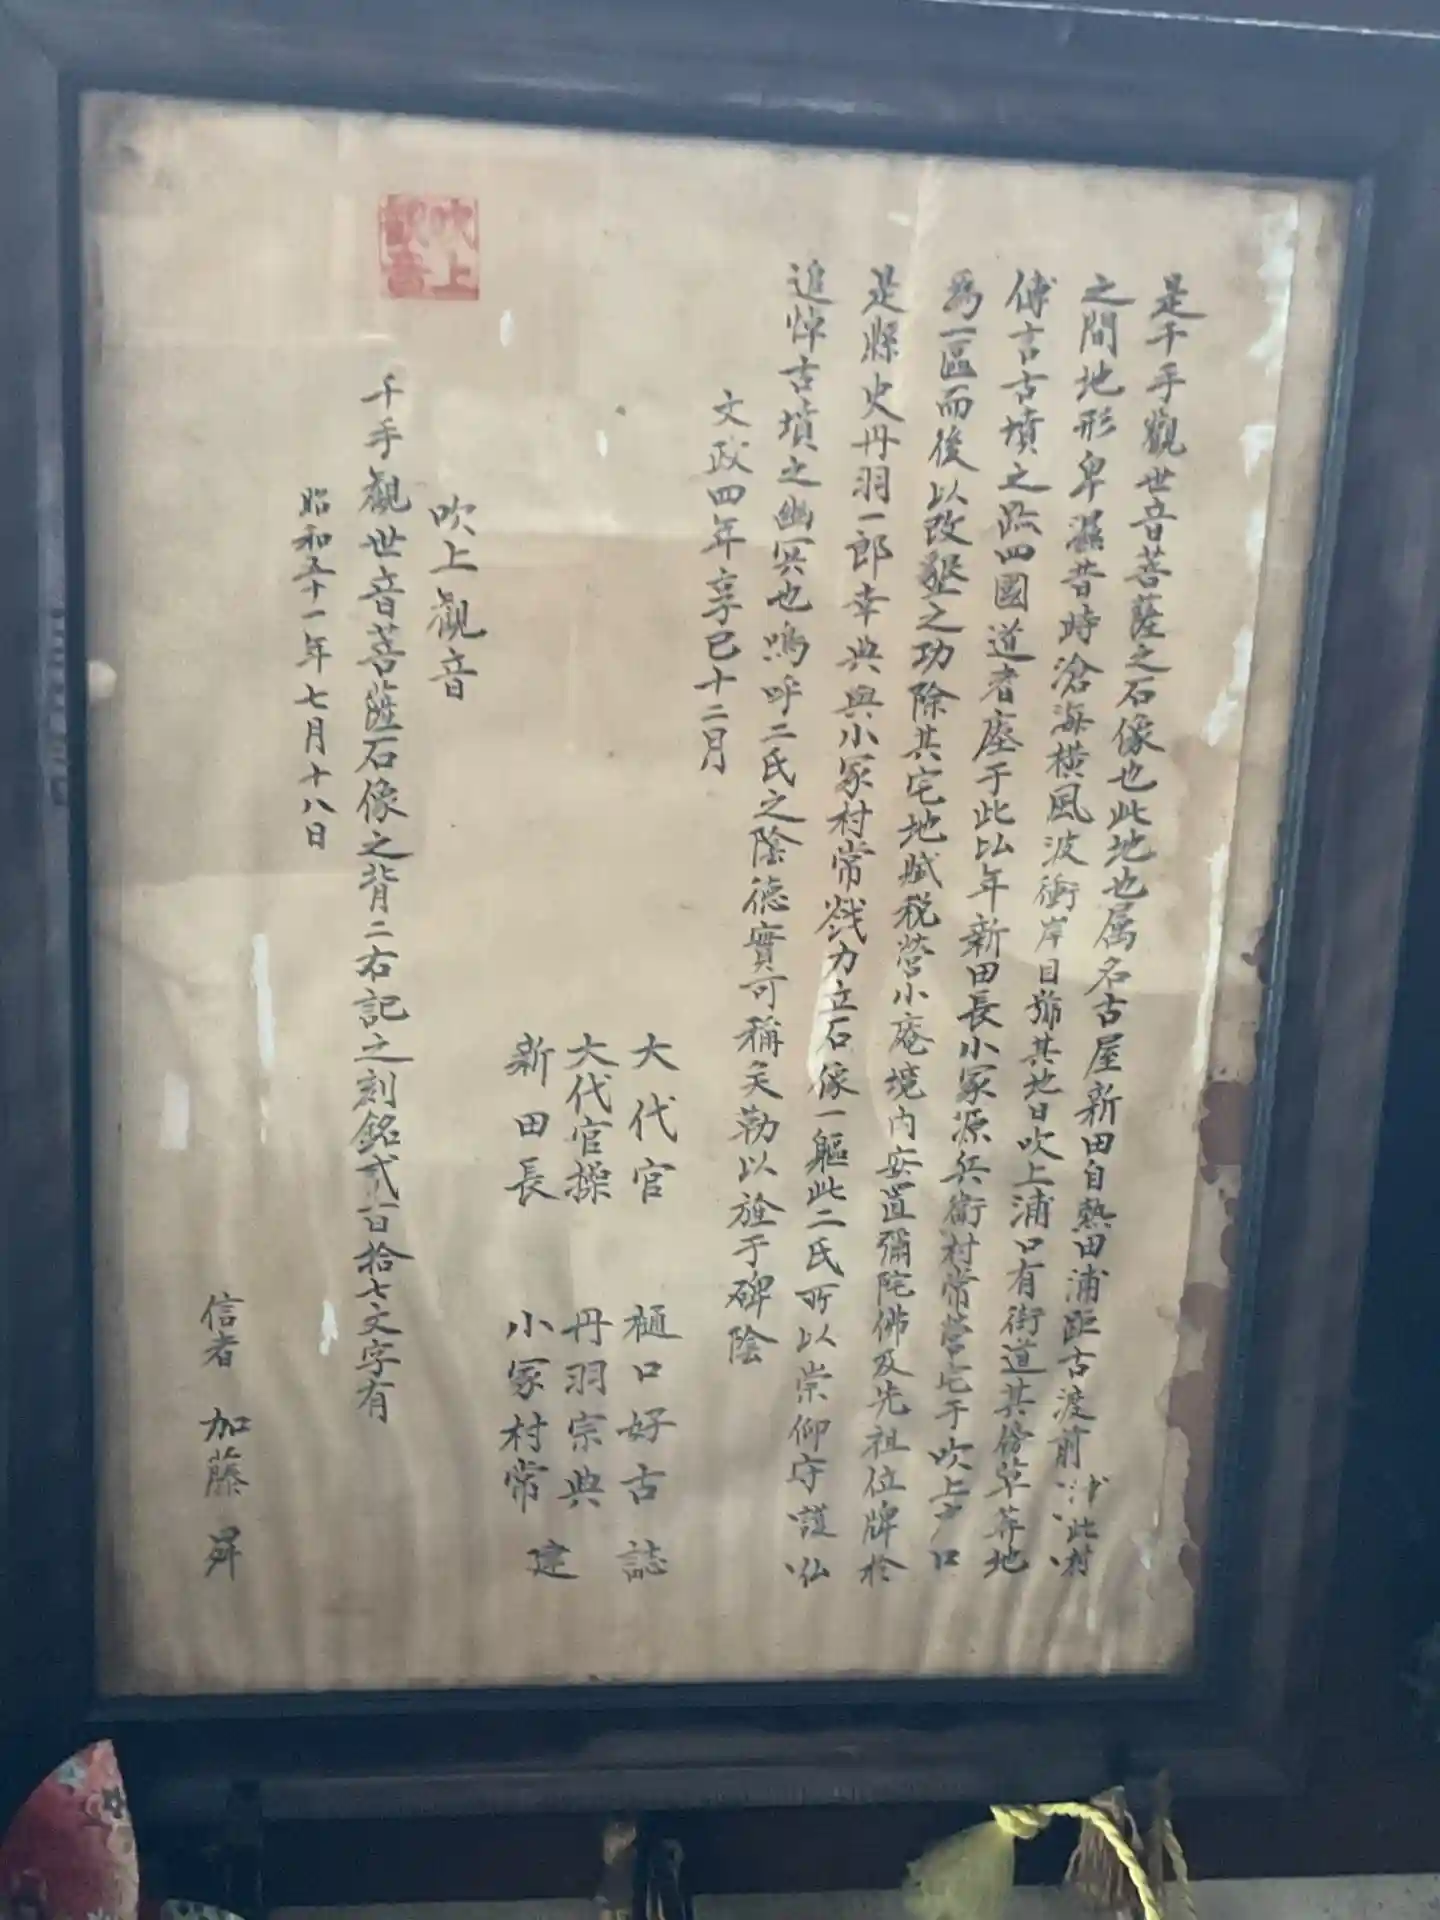 是千手觀世音菩薩之石像也此地也属名古屋新田自熱田浦距古渡前此村
之間地形卑濕昔時滄海横風波衝岸因號其地曰吹上浦口有街道其傍草莽地
傳言古墳之跡四國道者座于此近年新田長小冢源兵衛村常營宅于吹上戸口
為一區而後以改墾之功除其宅地賦税營小庵境内安置彌陀佛及先祖位牌於
是縣吏丹羽一郎幸典與小冢村常戮力立石像一軀此二氏所以崇仰守護仏
追悼古墳之幽冥也鳴呼二氏之陰徳實可稱矣勒以旌于碑陰
文政四年辛巳十二月
大代官 樋口好古 誌
大代官操 丹羽宗典
新田長 小冢村常 建
吹上觀音
千手觀世音菩薩石像之背二右記之刻銘弐百拾七文字有
昭和五十一年七月十八日
信者 加藤 昇
吹上
觀音